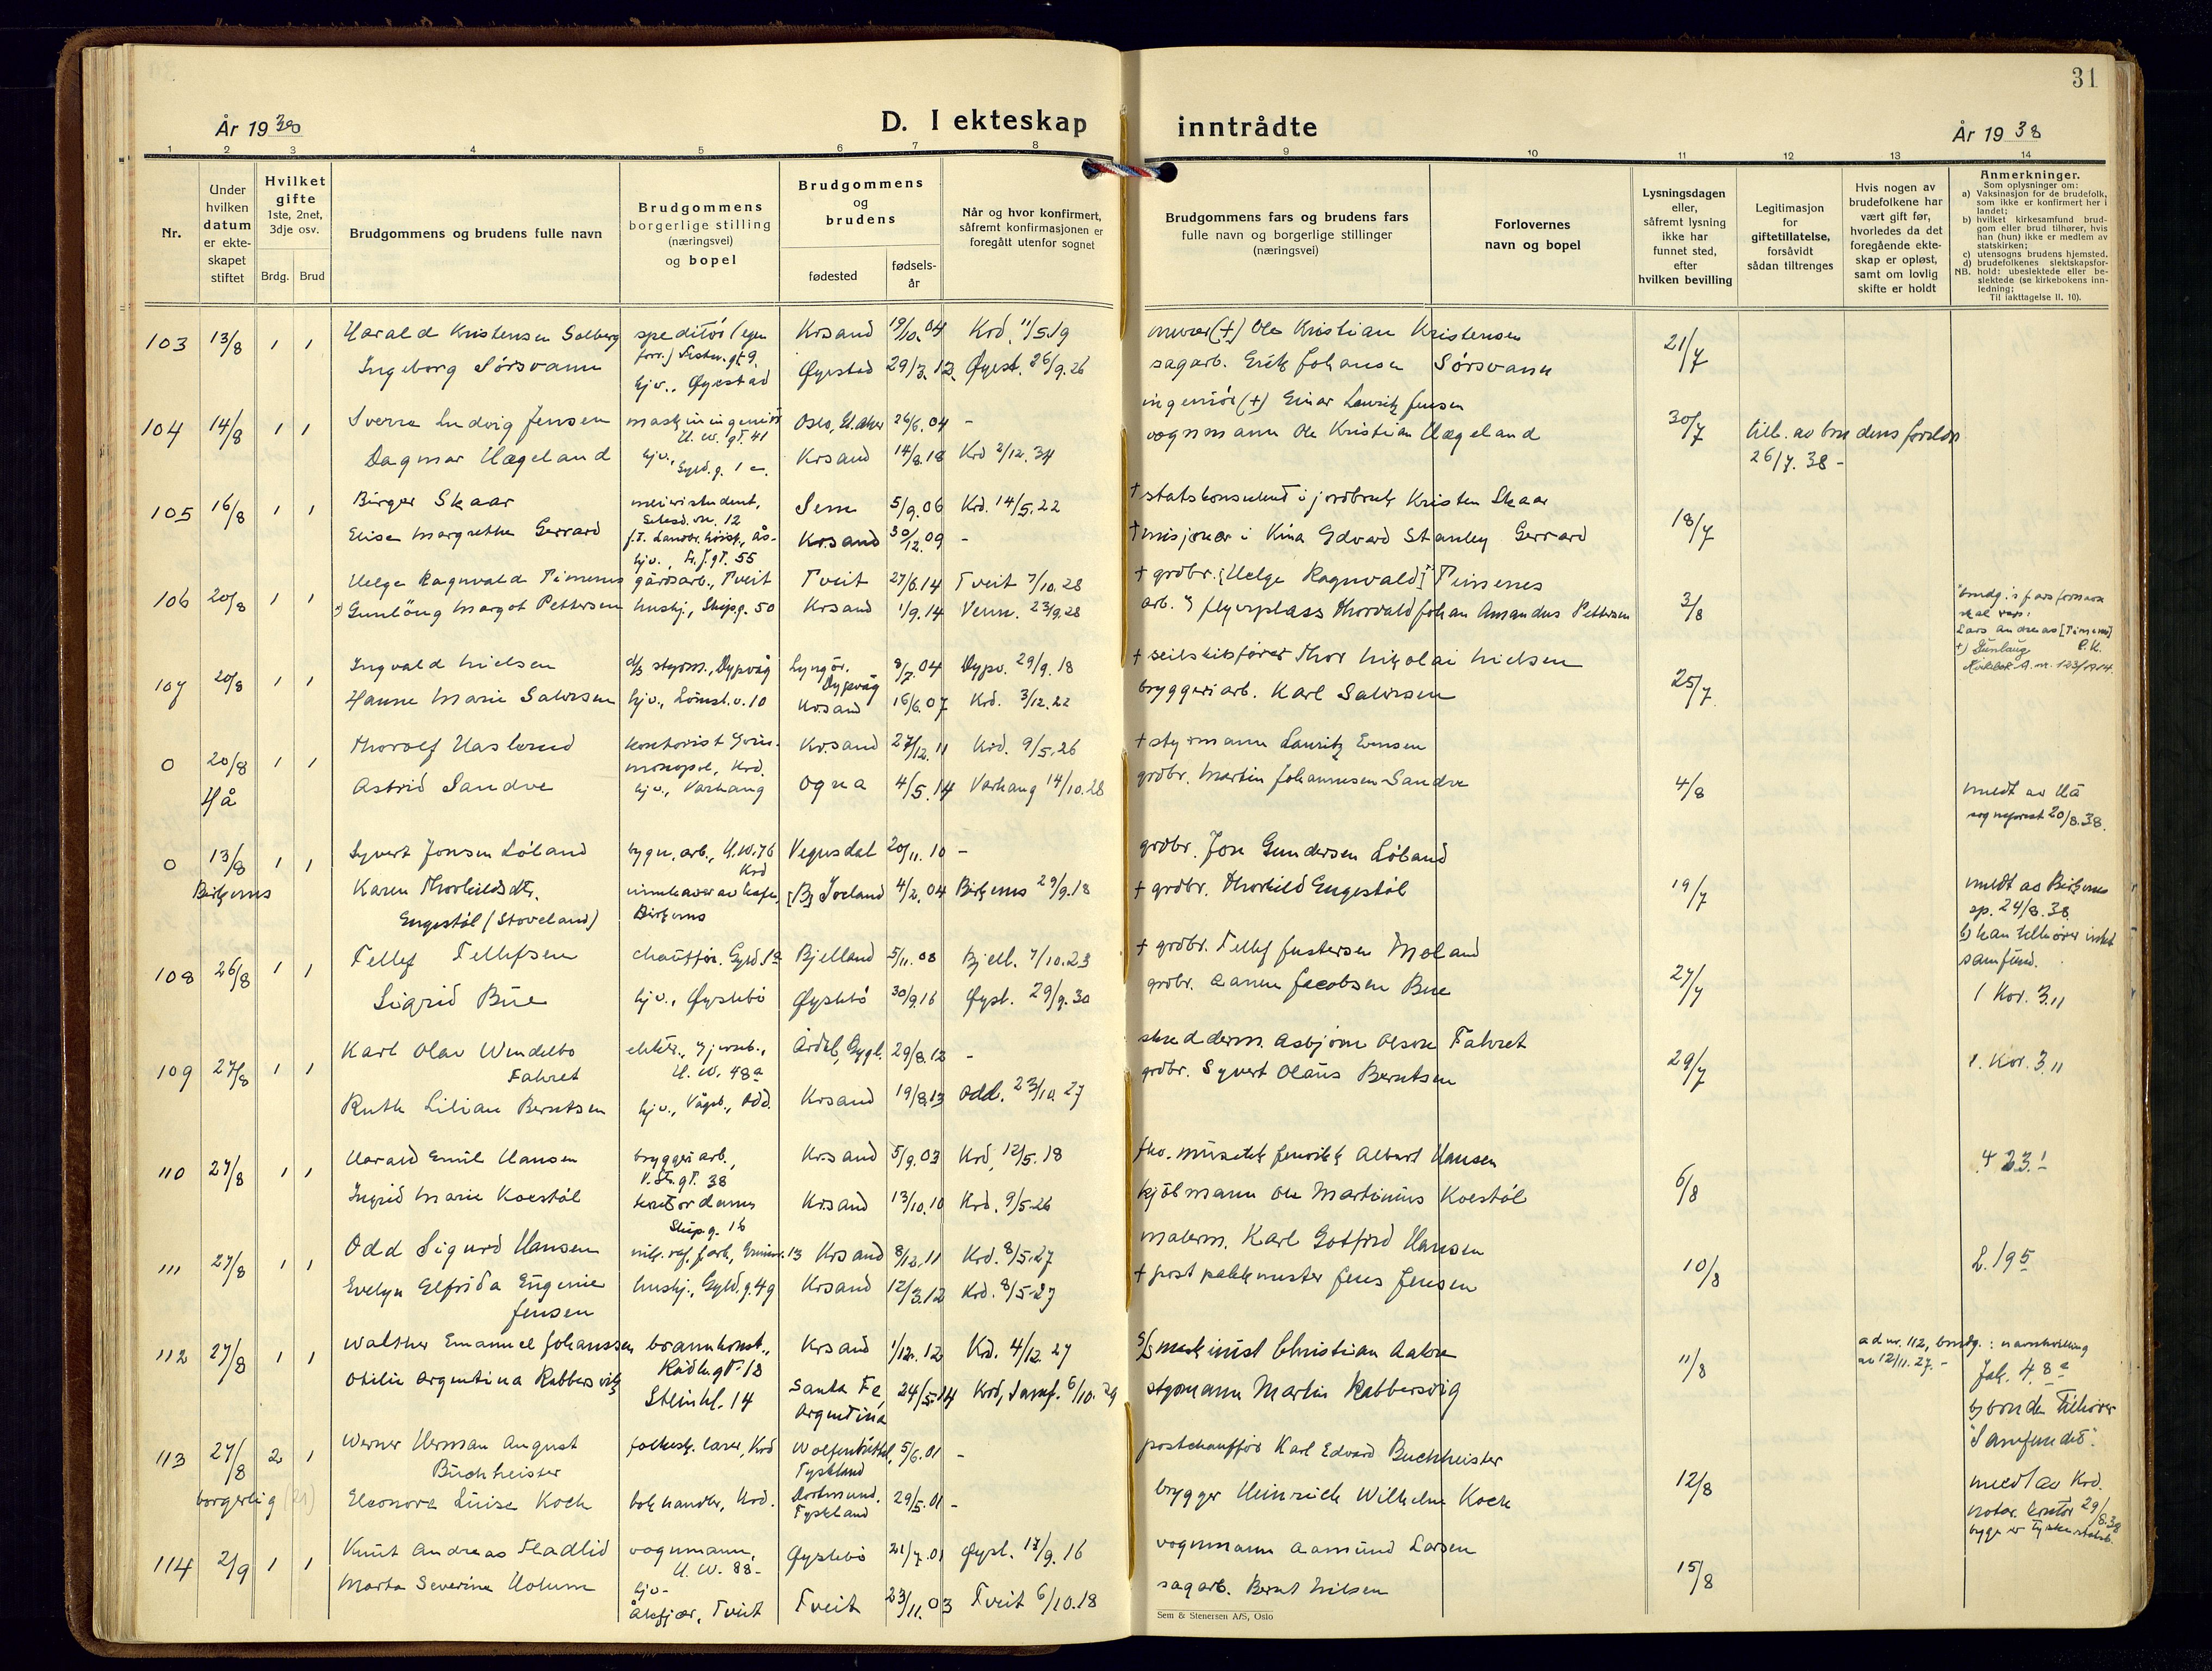 31
År 1938
D. I ekteskap
inntrådte
År 1938
1 2 3 4 5 6 7 8 9 10 11 12 13 14
Nr.
Under hvilken datum er ekteskapet stiftet
Hvilket gifte
1ste, 2net, 3dje osv.
Brdg. Brud
Brudgommens og brudens fulle navn
Brudgommens borgerlige stilling (næringsvei) og bopel
Brudgommens og brudens
fødested
fødsels-
år
Når og hvor konfirmert,
såfremt konfirmasjonen er
foregått utenfor sognet
Brudgommens fars og brudens fars
fulle navn og borgerlige stillinger
(næringsvei)
Forlovernes
navn og bopel
Lysningsdagen
eller,
såfremt lysning
ikke har
funnet sted,
efter
hvilken bevilling
Legitimasjon
for
giftetillatelse,
forsåvidt
sådan tiltrenges
Hvis nogen av
brudefolkene har
vært gift før,
hvorledes da det
foregående ekte-
skap er opløst,
samt om lovlig
skifte er holdt
Anmerkninger.
Som oplysninger om:
a) Vaksinasjon for de brudefolk,
som ikke er konfirmert her i
landet;
b) hvilket kirkesamfund brud-
gom eller brud tilhører, hvis
han (hun) ikke er medlem av
statskirken;
c) utensogns brudens hjemsted.
d) brudefolkenes slektskapsfor-
NB. hold: ubeslektede eller be-
slektede (se kirkebokens inn-
ledning;
Til iakttagelse II. 10).
103 13/8 1 1 Harald Kristensen Solberg speditør (egen Krsand 19/10.04 Krd. 11/5.19 murer (+) Ole Kristian Kristensen 21/7
Ingeborg Sørsvann hjv., Øyestad Øyestad 29/3.12 Øyest. 26/9.26 sagarb. Erik Johansen Sørsvann
104 14/8 1 1 Sverre Ludvig Jensen maskiningeniør H. W. gt. 41 Oslo, 26/6.04 - ingeniør (+) Einar Lauritz Jensen 30/7
Dagmar Hægeland hjv., Gyld. g. 1 Krsand 14/8.18 Krd 2/12.34 vognmann Ole Kristian Hægeland till. av brudens foreldr
26/7.38 -
105 16/8 1 1 Birger Skaar meieristudent, Sem 5/9.06 Krd. 14/5.22 + statskonsulent i jordbruk Kristen Skaar 18/7
Elise Margrethe Gerrard hjv., gt. 55 Krsand 30/12.09 - + misjonær i Kina Edvard Stanley Gerrard
106 20/8 1 1 Helge Ragnvald Timenes gårdsarb., Tveit Tveit 27/6.14 Tveit 7/10.28 + grdbr. [Helge Ragnvald] Timenes 3/8
Gunlaug Margot Pettersen hushj., Skipg. 50 Krsand 1/9.14 Venn. 23/9.28 arb. flyveplass Thorvald Johan Amandus Pettersen
brudg.s fars fornavn
skal være:
Lars Andreas [Timenes]
+) Gunlaug P.K.
Kirkebok A. nr. 123/1914.
107 20/8 1 1 Ingvald Nielsen d/s styrm., Dypvåg Lyngør, Dypvåg 8/7.04 Dypv. 29/9.18 + seilskibsfører Thor Nikolai Nielsen 25/7
Hanne Marie Salvesen hjv., Lømsl. v. 10 Krsand 16/6.07 Krd. 3/12.22 bryggeriarb. Karl Salvesen
0 20/8 1 1 Thorolf Haslund kontorist Krsand 27/12.11 Krd. 9/5.26 + styrmann Lauritz Evensen
Hå Astrid Sandve hjv., Varhaug Ogna 4/5.14 Varhaug 14/10.28 grdbr. Martin Johannesen Sandve 4/8
meldt av Hå
sogneprest 20/8.38.
0 13/8 1 1 Syvert Jonsen Løland bygn. arb., H.W. 76 Krd Vegusdal 20/11.10 - grdbr. Jon Gundersen Løland
Birkenes Karen Thorkildsdtr. innehaver av kafe, Birkenes [B] 4/2.04 Birkenes 29/9.18 + grdbr. Thorkild Engestøl 19/7
Engestøl (Stoveland)
meldt av Birkenes
sp. 24/8.38
b) han tilhører intet
samfund.
108 26/8 1 1 Tellef Tellefsen chauffør. Gyld. Bjelland 5/11.08 Bjell. 7/10.23 + grdbr. Tellef Justersen Moland 27/7
Sigrid Bue hjv., Øyslebø Øyslebø 30/9.16 Øysl. 29/9.30 grdbr. Aanen Jacobsen Bue 1 Kor. 3.11
109 27/8 1 1 Karl Olav Wendelbo Fahret elektr., H. W. 48a 29/8.12 - skredderm. Asbjørn Olsen Fahret 29/7
Ruth Lilian Berntsen hjv., Vågsb., Odd. Krsand 19/8.13 Odd. 23/10.27 grdbr. Syvert Olaus Berntsen 1. Kor. 3.11
110 27/8 1 1 Harald Emil Hansen bryggeriarb., V. St. gt. 38 Krsand 5/9.03 Krd, 12/5.18 fhv. musikk Henrik Albert Hansen 6/8
Ingrid Marie Koestøl kontordame Skipg. 16 Krsand 13/10.10 Krd. 9/5.26 kjølmann Ole Martinius Koestøl
111 27/8 1 1 Odd Sigurd Hansen Krsand 8/12.11 Krd. 8/5.27 malerm. Karl Gotfred Hansen 10/8
Evelyn Elfrida Eugenie Jensen hushj., Gyld. g. 49 Krsand 12/3.12 Krd. 8/5.27 + postpakkmester Jens Jensen
112 27/8 1 1 Walther Emanuel Johanssen brannkonst., Rådh. gt. 18 Krsand 1/12.12 Krd. 4/12.27 s/s maskinist Christian Aabye 11/8
Otilie Argentina Rabbersvik Steinkl. 14 Santa Fé, Argentina 24/5.14 Krd, Samf. 6/10.29 styrmann Martin Rabbersvig
ad nr. 112, brudg.: navnbevilling
av 12/11.27. -
Joh. 4.8
b) bruden tilhører
"Samfundet".
113 27/8 2 1 Werner Herman August Buchheister folkesk. lærer, Krd Wolfenbüttel, Tyskland 5/6.01 - postchauffør Karl Edvard Buchheister 12/8
borgerlig Eleonore Luise Koch bokhandler, Krd. Dortmund, Tyskland 29/5.01 - brygger Heinrich Wilhelm Koch
meldt av Krd.
notar. kontor 29/8.38
begge er tyske statsb.
114 2/9 1 1 Knut Andreas Fladlid vognmann, H. W. 88 - Øyslebø 21/7.01 Øysl. 17/9.16 vognmann Aamund Larsen 15/8
Marta Severine Holum hjv - Ålefjær, Tveit Tveit 23/11.03 Tveit 6/10.18 sagarb. Bernt Nilsen
Sem & Stenersen A/S, Oslo